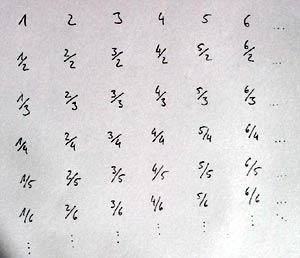 1 2 3 4 5 6 ...
1/2 2/2 3/2 4/2 5/2 6/2 ...
1/3 2/3 3/3 4/3 5/3 6/3 ...
1/4 2/4 3/4 4/4 5/4 6/4 ...
1/5 2/5 3/5 4/5 5/5 6/5 ...
1/6 2/6 3/6 4/6 5/6 6/6 ⋱
⋮ ⋮ ⋮ ⋮ ⋮ ⋮